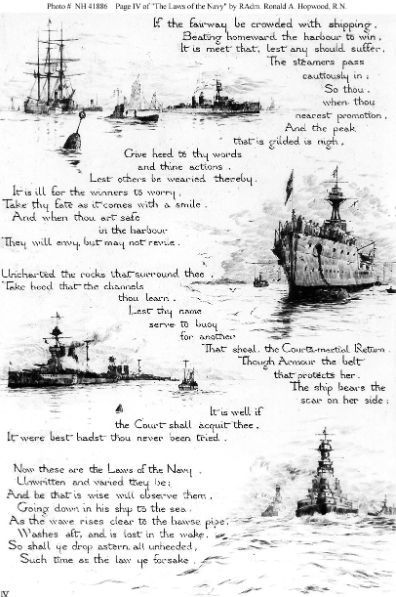 Photo # NH 41886 Page IV of "The Laws of the Navy" by RAdm. Ronald A. Hopwood, R.N.
If the fairway be crowded with shipping,
Beating homeward the harbour to win,
It is meet that, lest any should suffer,
The steamers pass
cautiously in;
So thou, when thou
nearest promotion,
And the peak
that is gilded is nigh,
Give heed to thy words
and thine actions,
Lest others be wearied thereby.
It is ill for the winners to worry,
Take thy fate as it comes with a smile,
And when thou art safe
in the harbour
They will envy, but may not revile.
Uncharted the rocks that surround thee,
Take heed that the channels
thou learn,
Lest thy name
serve to buoy
for another
That shoal, the Courts-martial Return.
Though Armour the belt
that protects her,
The ship bears the
scar on her side;
It is well if
the Court shall acquit thee,
It were best hadst thou never been tried.
Now these are the Laws of the Navy,
Unwritten and varied they be;
And he that is wise will observe them,
Going down in his ship to the sea.
As the wave rises clear to the hawse pipe,
Washes aft, and is lost in the wake,
So shall ye drop astern, all unheeded,
Such time as the law ye forsake.
IV